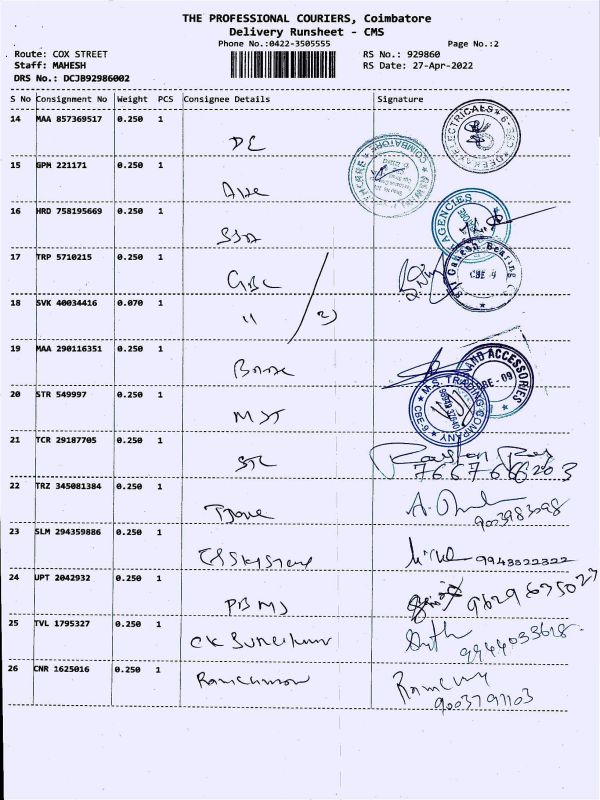 THE PROFESSIONAL COURIERS, Coimbatore
Delivery Runsheet - CMS
Phone No.:0422-3505555
Page No.:2
Route: COX STREET
RS No.: 929860
Staff: MAHESH
RS Date: 27-Apr-2022
DRS No.: DCJB92986002
S No Consignment No Weight PCS Consignee Details Signature
14 MAA 857369517 0.250 1
DE
15 GPM 221171 0.250 1
16 HRD 758195669 0.250 1
AGENCIES
17 TRP 5710215 0.250 1
GBC
Sri Ganesh Bearing
CBE - 9
18 SVK 40034416 0.070 1
11 / 2)
19 MAA 290116351 0.250 1
AND ACCESSORIES
CBE - 09
20 STR 549997 0.250 1
MST
M.S. TRADING COMPANY
CBE-9
21 TCR 29187705 0.250 1
STC
7667666203
22 TRZ 345081384 0.250 1
9003983098
23 SLM 294359886 0.250 1
9943822322
24 UPT 2042932 0.250 1
PBMS
9629635027
25 TVL 1795327 0.250 1
CK
9944033618
26 CNR 1625016 0.250 1
9003791103